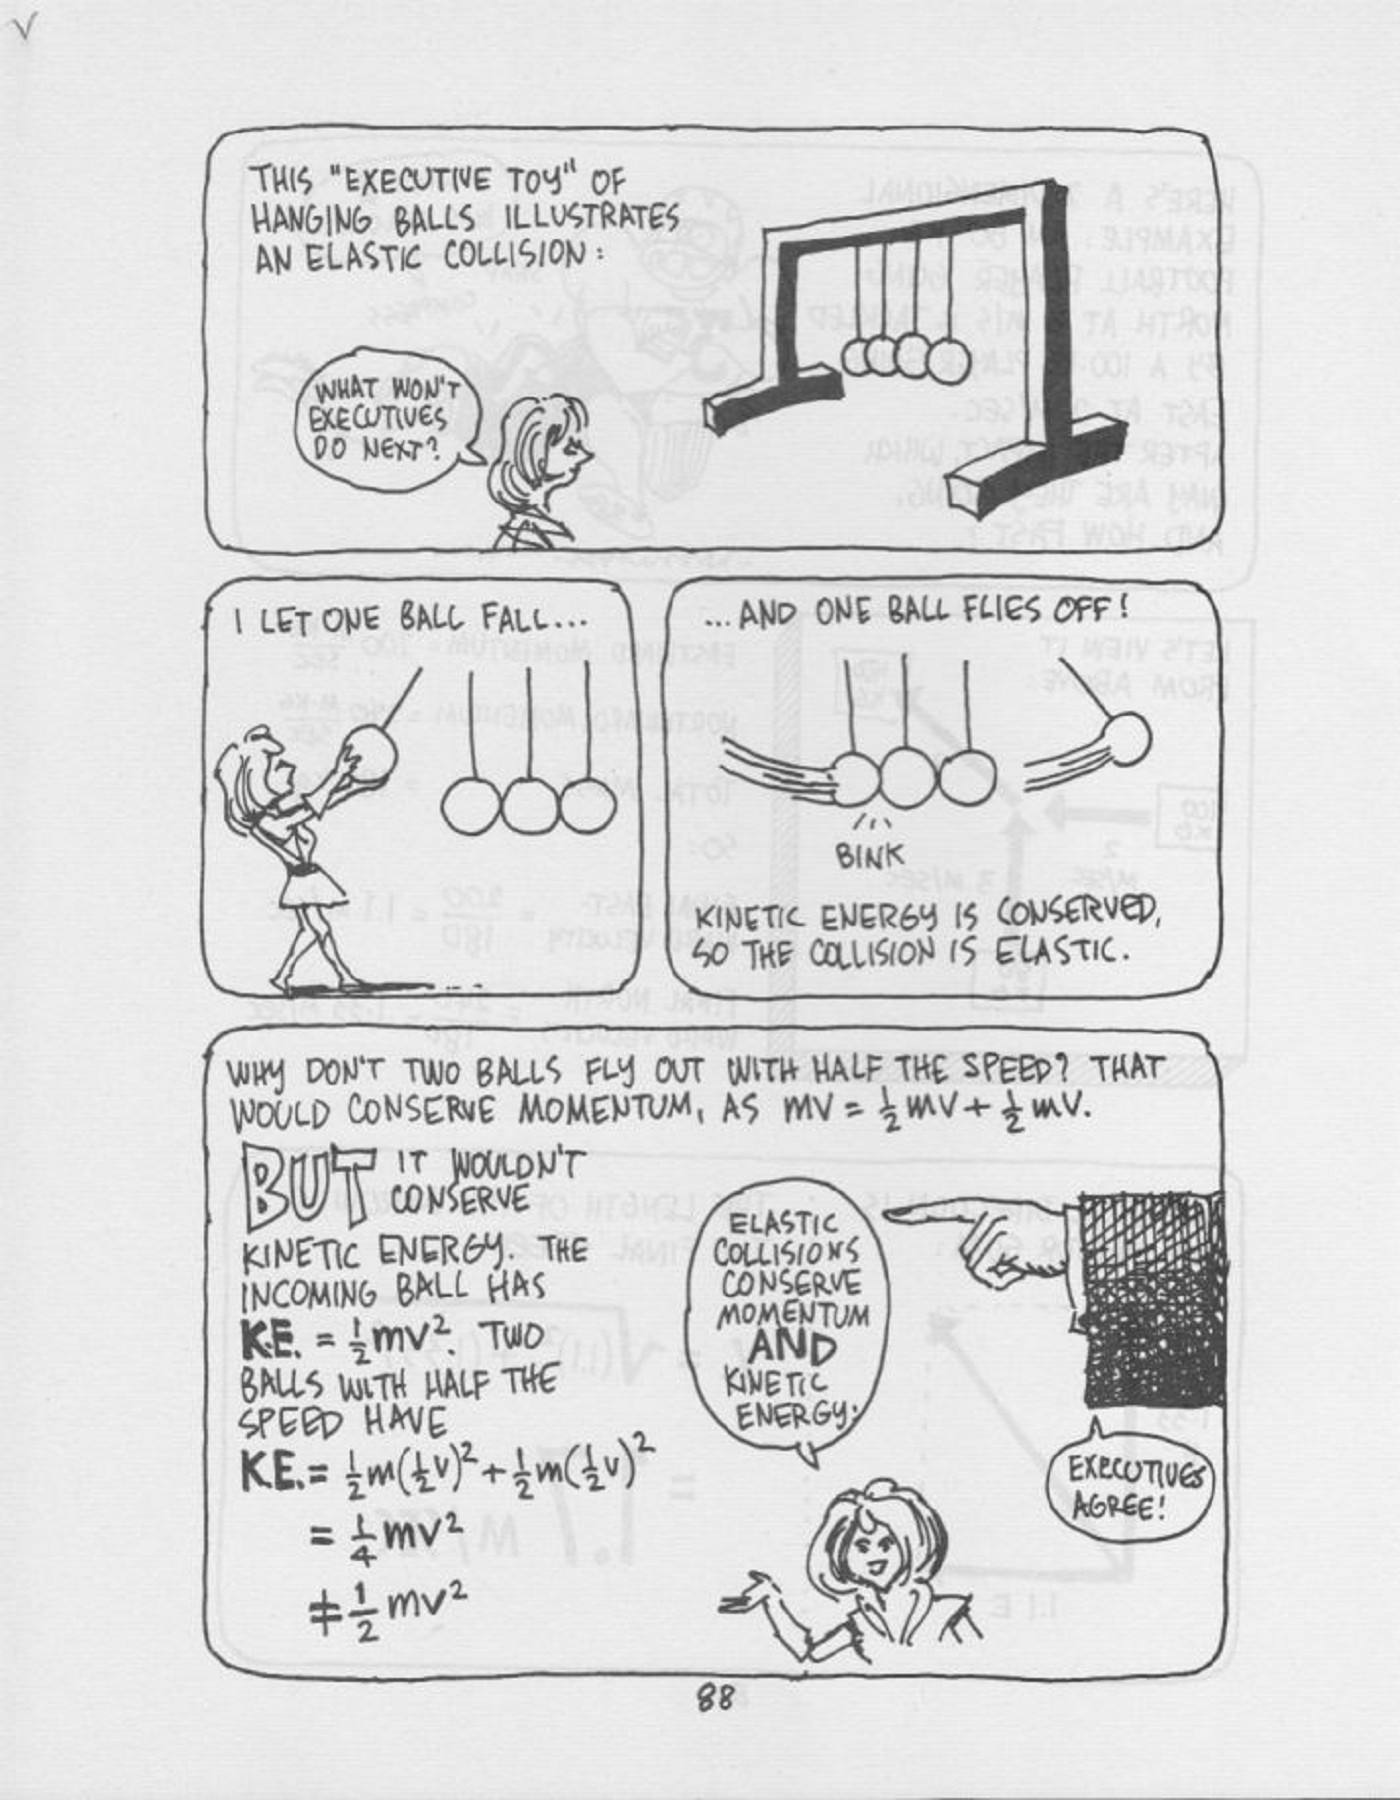 THIS "EXECUTIVE TOY" OF
HANGING BALLS ILLUSTRATES
AN ELASTIC COLLISION:
WHAT WON'T
EXECUTIVES
DO NEXT?
I LET ONE BALL FALL...
...AND ONE BALL FLIES OFF!
BINK
KINETIC ENERGY IS CONSERVED,
SO THE COLLISION IS ELASTIC.
WHY DON'T TWO BALLS FLY OUT WITH HALF THE SPEED? THAT
WOULD CONSERVE MOMENTUM, AS mv = ½mv + ½mv.
BUT IT WOULDN'T
CONSERVE
KINETIC ENERGY. THE
INCOMING BALL HAS
K.E. = ½mv². TWO
BALLS WITH HALF THE
SPEED HAVE
K.E. = ½m(½v)² + ½m(½v)²
= ¼mv²
≠ ½mv²
ELASTIC
COLLISIONS
CONSERVE
MOMENTUM
AND
KINETIC
ENERGY:
EXECUTIVES
AGREE!
88